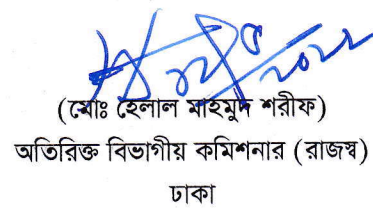 (মোঃ হেলাল মাহমুদ শরীফ)
অতিরিক্ত বিভাগীয় কমিশনার (রাজস্ব)
ঢাকা